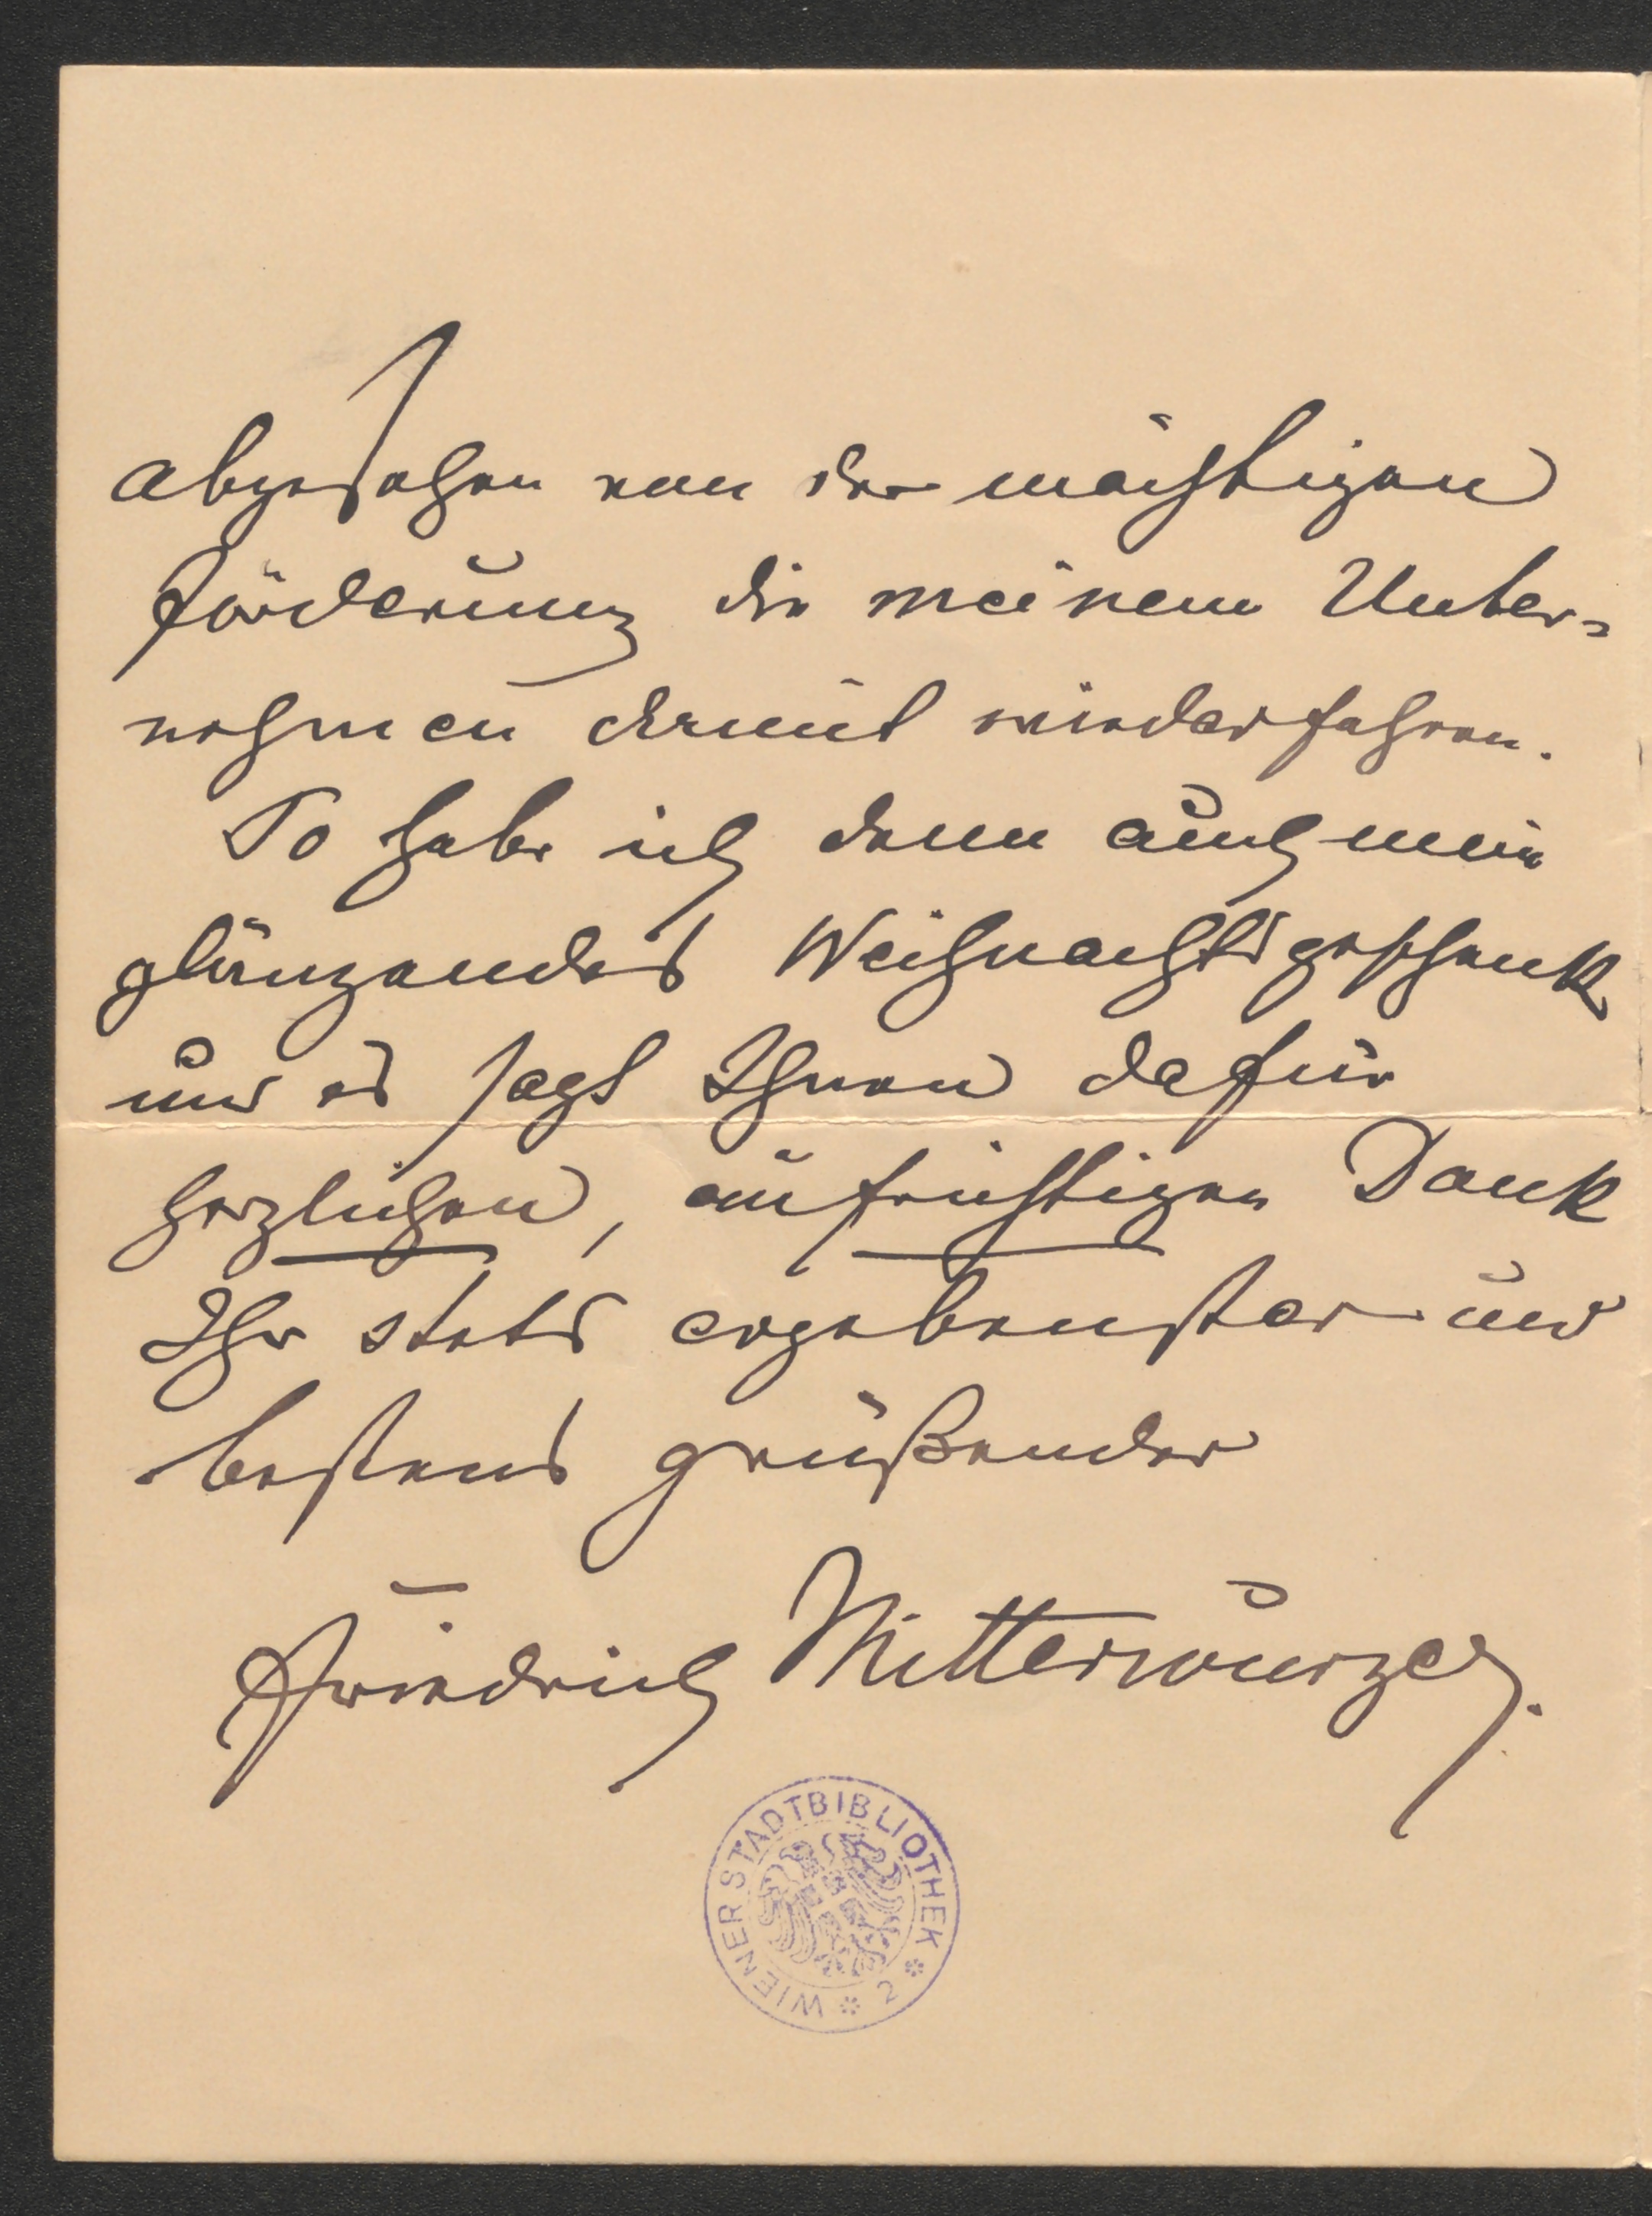 abgesehen von der mächtigen
Förderung die meinem Unter-
nehmen damit wiederfahren.
So habe ich denn auch mein
glänzendes Weihnachtsgeschenk
und es sagt Ihnen dafür
herzlichen, aufrichtigen Dank
Ihr stets ergebenster und
bestens grüßender
Friedrich Mitterwurzer.
WIENER STADTBIBLIOTHEK * 2 *